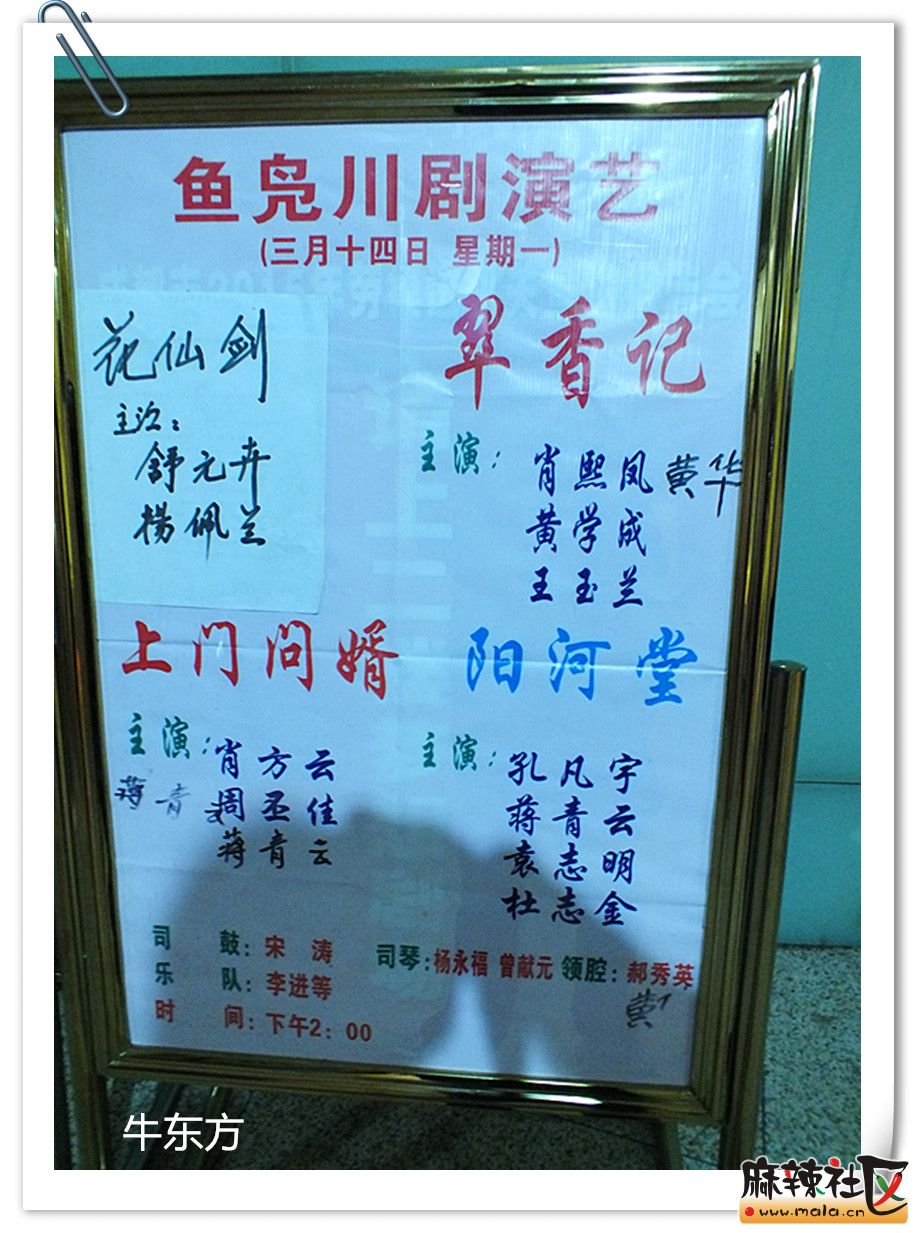 鱼凫川剧演艺
(三月十四日 星期一)
花仙剑
主演：
舒元卉
杨佩兰
翠香记
主演：
肖熙凤 黄华
黄学成
王玉兰
上门问婿
主演：
肖方云
周丕佳
蒋青云
蒋青
阳河堂
主演：
孔凡宇
蒋青云
袁志明
杜志金
司鼓：宋涛
司琴：杨永福 曾献元 领腔：郝秀英
乐队：李进等
黄
时间：下午2：00
牛东方
麻辣社区
www.mala.cn